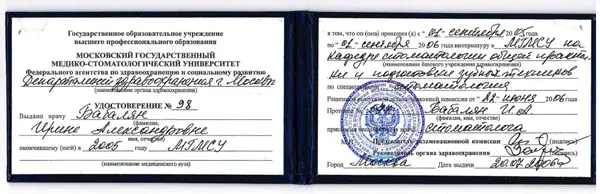 Государственное образовательное учреждение
высшего профессионального образования
МОСКОВСКИЙ ГОСУДАРСТВЕННЫЙ
МЕДИКО-СТОМАТОЛОГИЧЕСКИЙ УНИВЕРСИТЕТ
Федерального агентства по здравоохранению и социальному развитию
Департамент здравоохранения г. Москвы
(наименование органа здравоохранения)
УДОСТОВЕРЕНИЕ № 98
Выдано врачу Бабалян
(фамилия,
Ирине Александровне
имя, отчество)
окончившему (шей) в 2005 году МГМСУ
(наименование медицинского вуза)
в том, что он (она) проходил (а) с «01» сентября 2005 года
по «01» сентября 2006 интернатуру в МГМСУ на
кафедре стоматологии общей практики
и подготовки зубных техников
по специальности стоматология
Решением выпускной экзаменационной комиссии от «22» июня 2006
Бабалян И.А.
(фамилия, имя, отчество)
стоматолога
Председатель экзаменационной комиссии
Руководитель органа здравоохранения
Город Москва Дата выдачи 20.07.2006